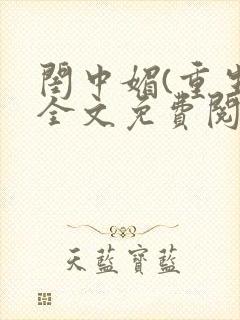 閨中媚(重生
全文免費閱
天藍寶藍